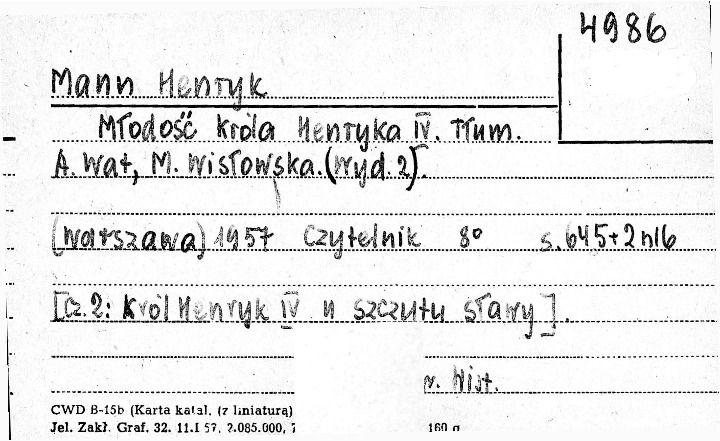 4986
Mann Henryk
Młodość króla Henryka IV. Tłum.
A. Wat, M. Wisłowska. (Wyd. 2).
(Warszawa) 1957 Czytelnik 8° s. 645+2 nlb
[Cz. 2: Król Henryk IV u szczytu sławy].
w. Wist.
CWD B-15b (Karta katal. (z liniaturą)
Jel. Zakł. Graf. 32. 11.I 57. 2.085.000, 160 g